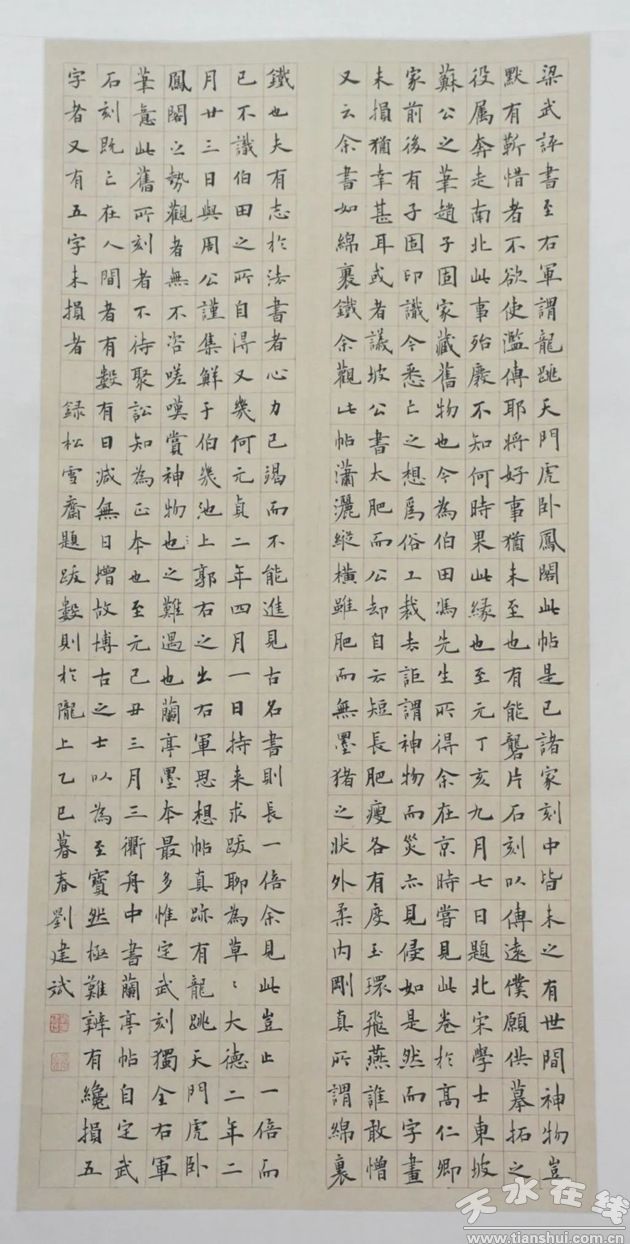 梁武評書至右軍謂龍跳天門虎卧鳳閣此帖是已諸家刻中皆未之有世間神物豈
默有靳惜者不欲使濫傳耶將好事猶未至也有能礱片石刻以傳遠僕願供摹拓之
役属奔走南北此事殆廢不知何時果此緣也至元丁亥九月七日題北宋學士東坡
蘇公之筆趙子固家藏舊物也今為伯田馮先生所得余在京時嘗見此卷於高仁卿
家前後有子固印識今悉亡之想爲俗工裁去詎謂神物而災亦見侵如是然而字畫
未損猶幸甚耳或者議坡公書太肥而公却自云短長肥瘦各有度玉環飛燕誰敢憎
又云余書如綿裹鐵余觀此帖瀟灑縱橫雖肥而無墨猪之狀外柔内剛真所謂綿裹
鐵也夫有志於法書者心力已竭而不能進見古名書則長一倍余見此豈止一倍而
已不識伯田之所自得又幾何元貞二年四月一日持来求跋聊為草〻大德二年二
月廿三日與周公謹集鮮于伯幾池上郭右之出右軍思想帖真跡有龍跳天門虎卧
鳳閣之勢觀者無不咨嗟嘆賞神物也之難遇也蘭亭墨本最多惟定武刻獨全右軍
筆意此舊所刻者不待聚訟知為正本也至元己丑三月三衢舟中書蘭亭帖自定武
石刻既亡在人間者有數有日減無日增故博古之士以為至寶然極難辨有纔損五
字者又有五字未損者 録松雪齋題跋數則於隴上乙巳暮春劉建斌
天水在线
www.tianshui.com.cn